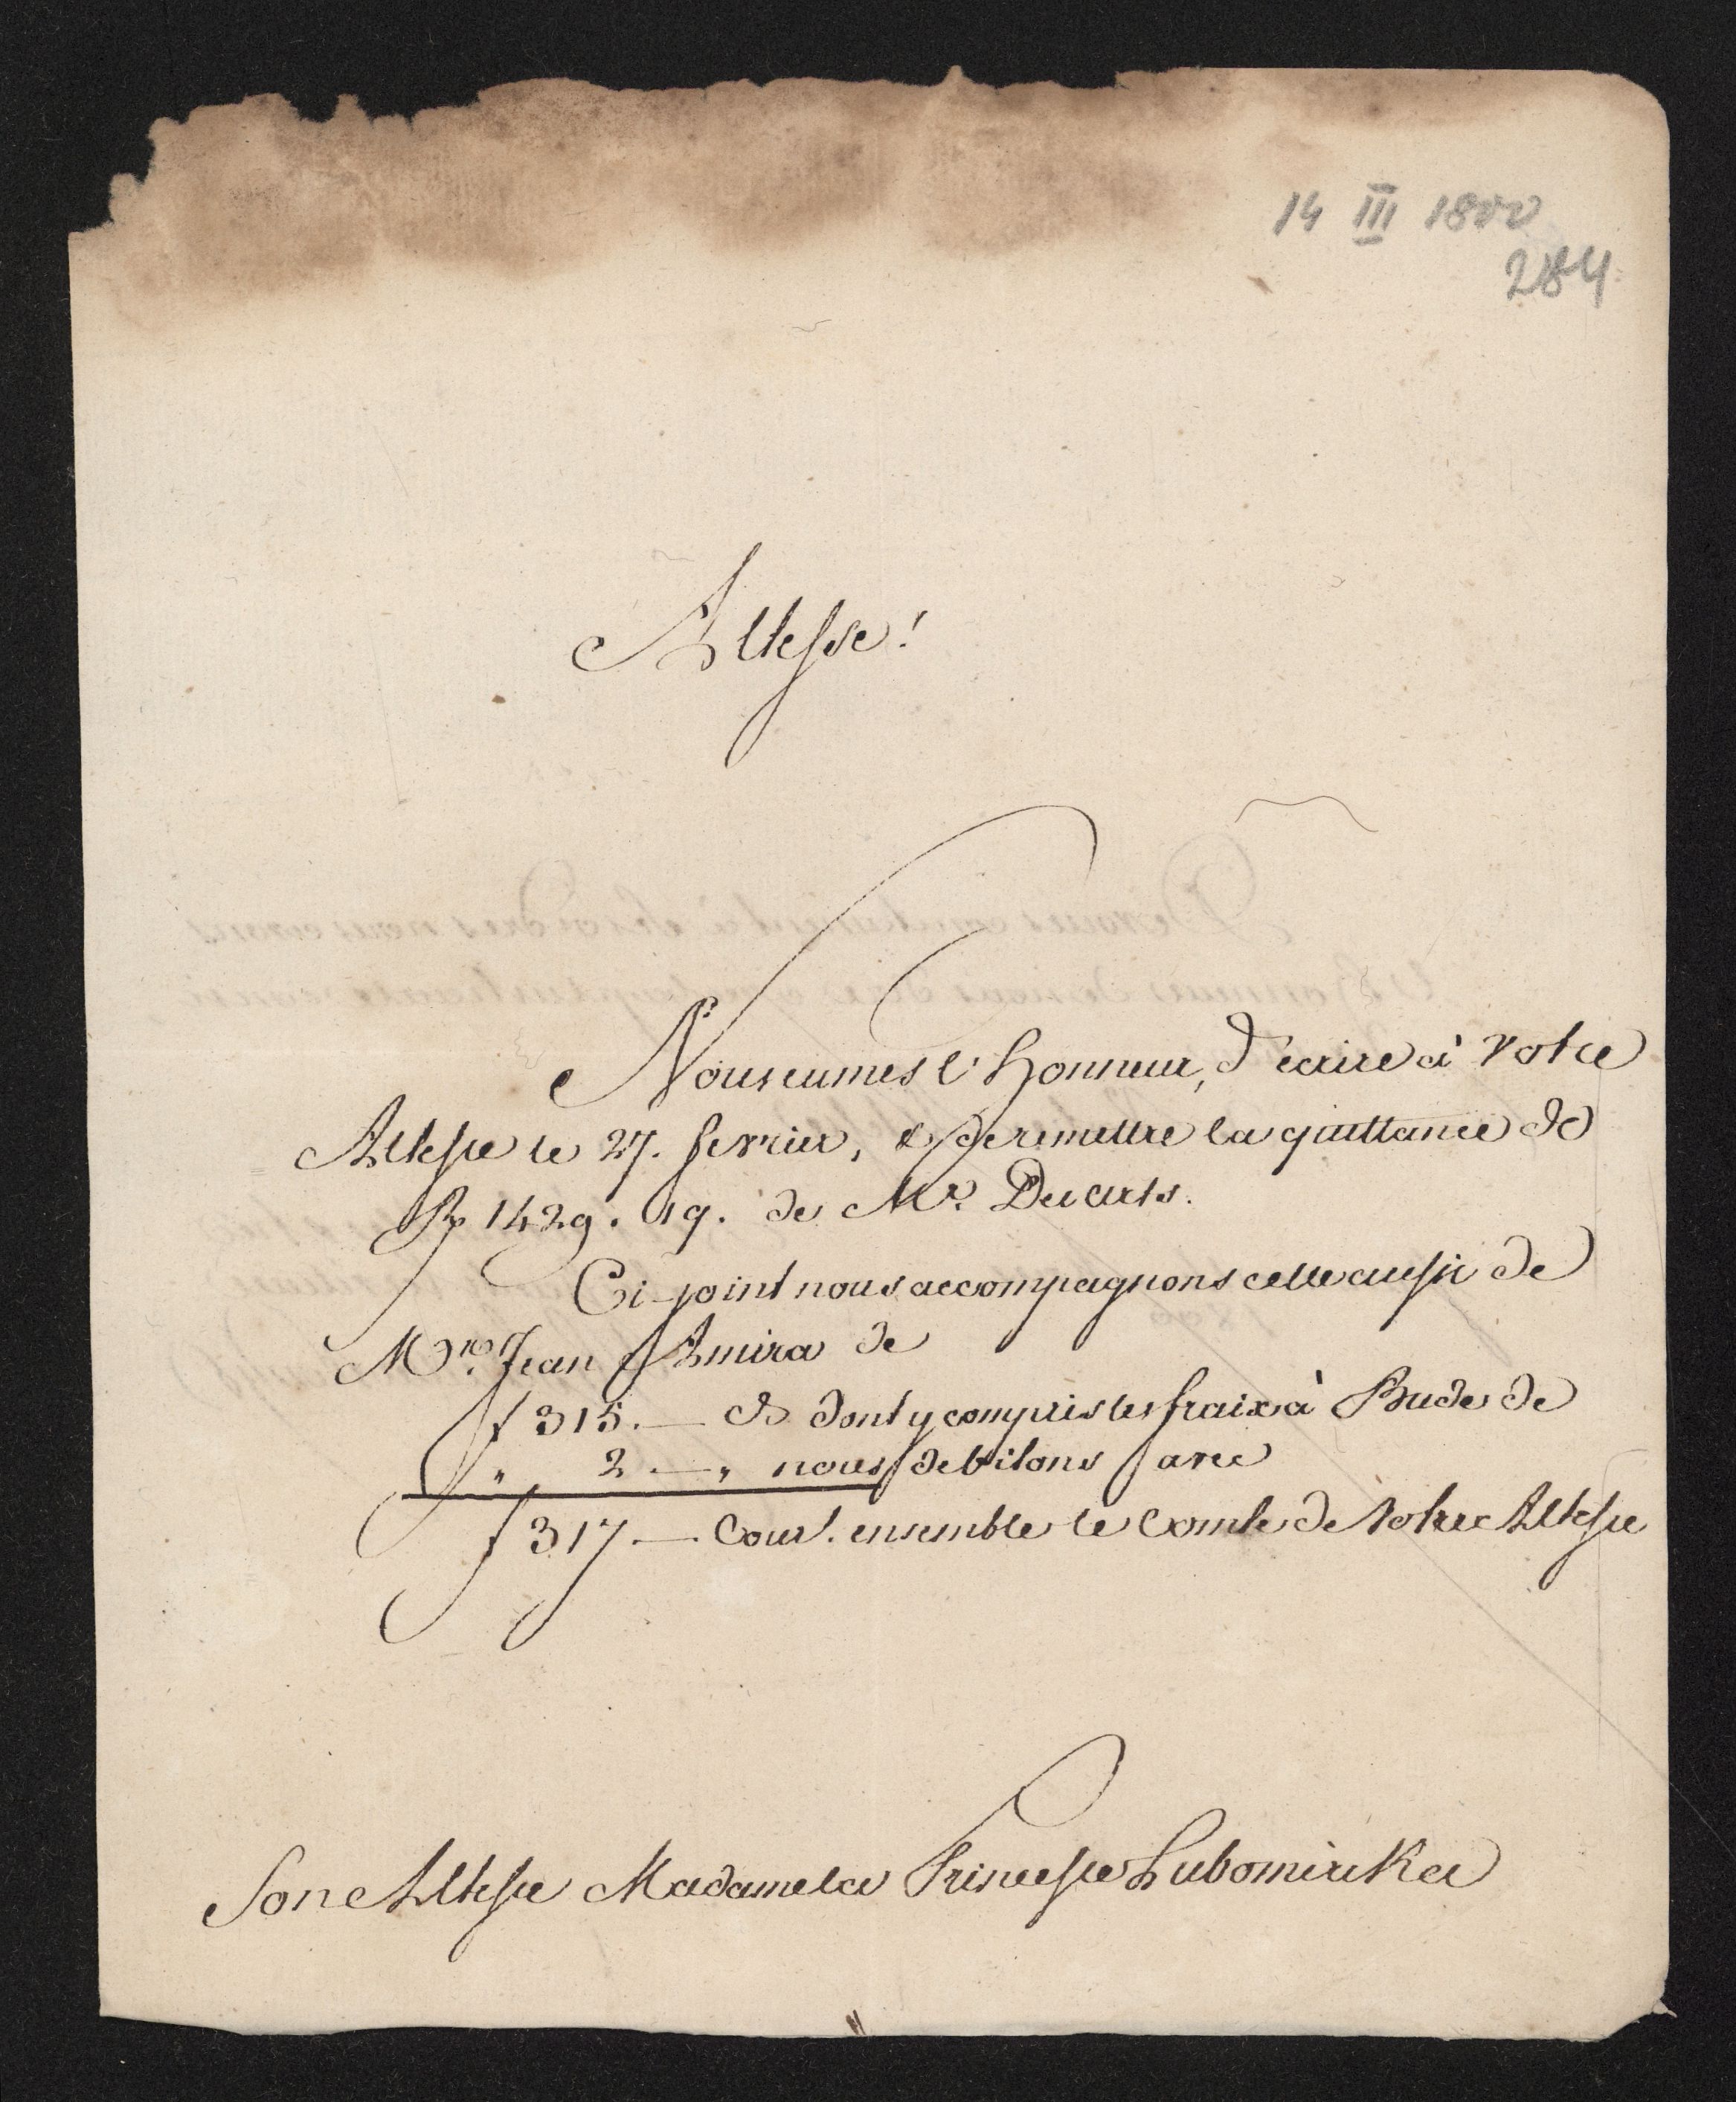 14 III 1800
284
Altesse!
Nous eumes l'honneur, d'ecrire à Votre
Altesse le 27. fevrier, & de remettre la quittance de
1429. 19. de Mr. Ducats.
Ci-joint nous accompagnons celle aussi de
Mrs. Jean Amira de
f 315. — dont y compris les fraix à Bude de
" 2 — " nous debitons avec
f 317. — Cour.t ensemble le Comte de Votre Altesse
Son Altesse Madame la Princesse Lubomirska